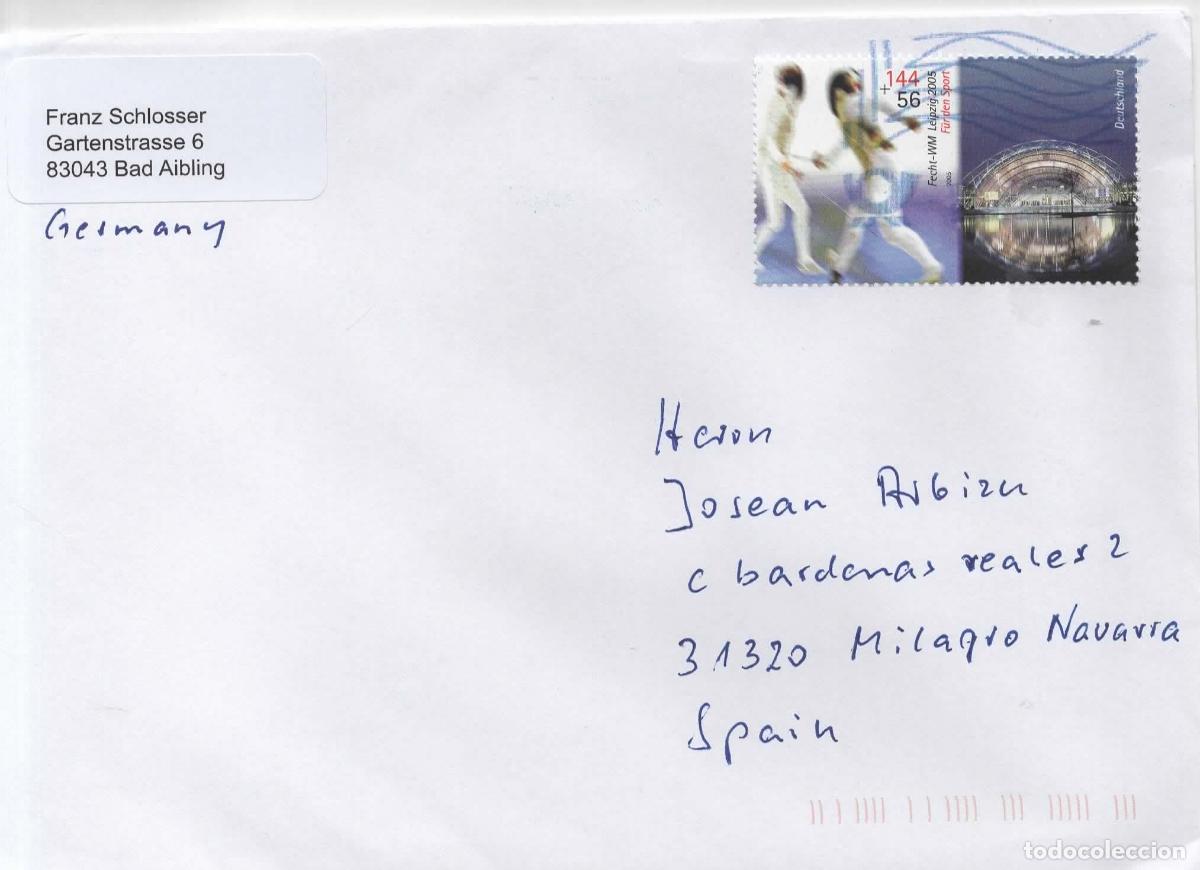 Franz Schlosser
Gartenstrasse 6
83043 Bad Aibling
Germany
144
+
56
Fecht-WM Leipzig 2005
Für den Sport
2005
Deutschland
Herrn
Josean Arbizu
c bardenas reales 2
31320 Milagro Navarra
Spain
todocoleccion